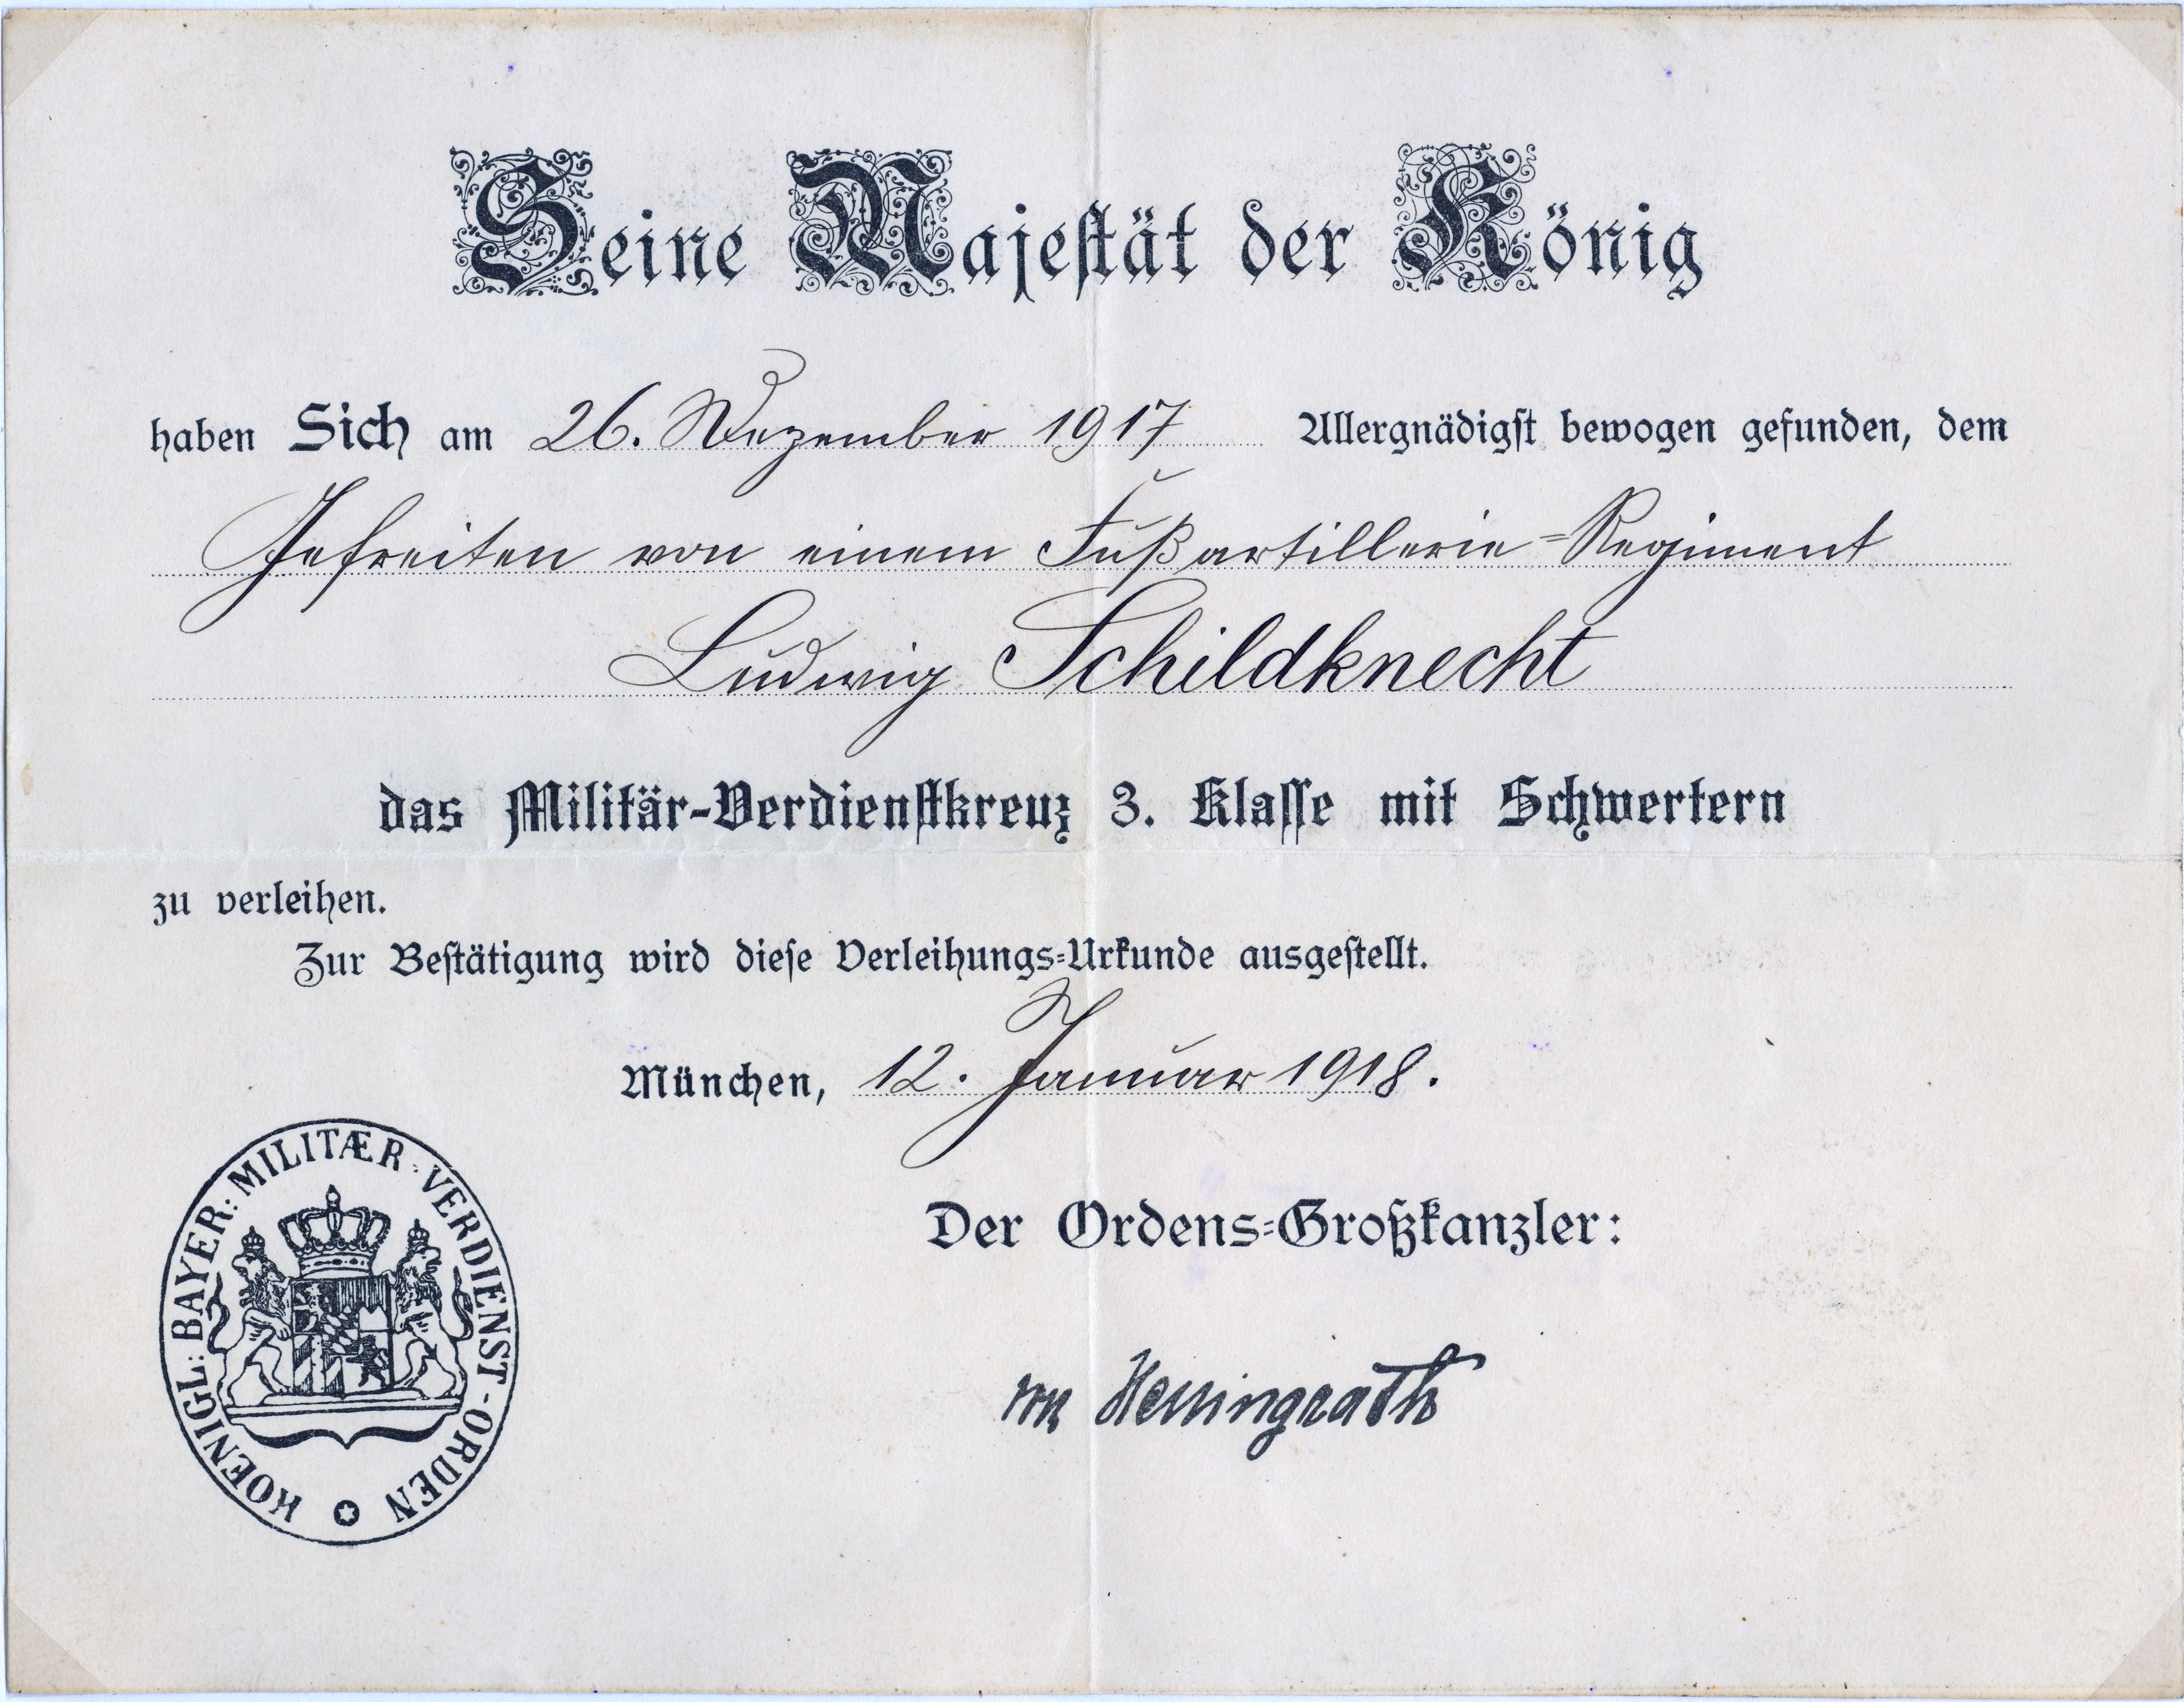 Seine Majestät der König
haben Sich am 26. Dezember 1917 Allergnädigst bewogen gefunden, dem
Gefreiten von einem Fußartillerie-Regiment
Ludwig Schildknecht
das Militär-Verdienstkreuz 3. Klasse mit Schwertern
zu verleihen.
Zur Bestätigung wird diese Verleihungs-Urkunde ausgestellt.
München, 12. Januar 1918.
Der Ordens-Großkanzler:
von
KOENIGL: BAYER: MILITÆR-VERDIENST-ORDEN